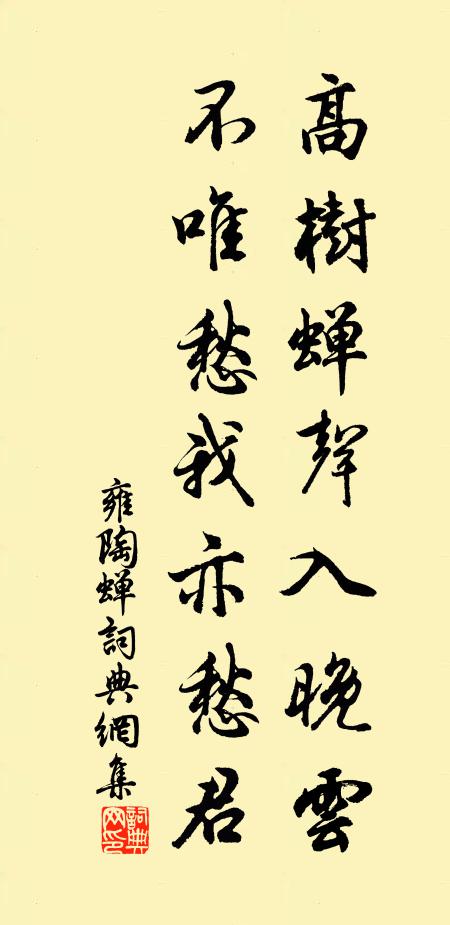 高樹蝉聲入晚雲
不唯愁我亦愁君
雍陶蝉詞典網集
詞典网印